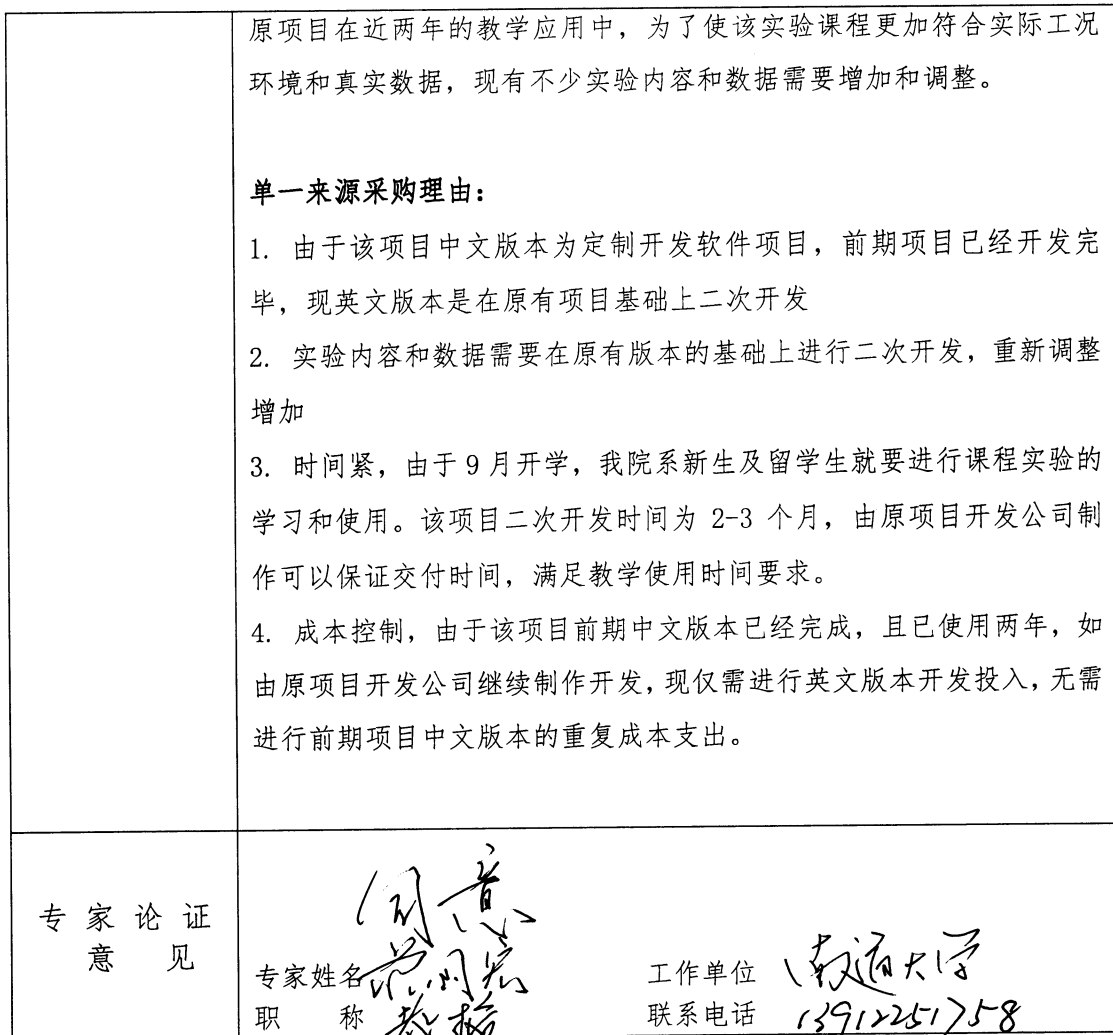 原项目在近两年的教学应用中，为了使该实验课程更加符合实际工况
环境和真实数据，现有不少实验内容和数据需要增加和调整。
单一来源采购理由：
1. 由于该项目中文版本为定制开发软件项目，前期项目已经开发完
毕，现英文版本是在原有项目基础上二次开发
2. 实验内容和数据需要在原有版本的基础上进行二次开发，重新调整
增加
3. 时间紧，由于 9 月开学，我院系新生及留学生就要进行课程实验的
学习和使用。该项目二次开发时间为 2-3 个月，由原项目开发公司制
作可以保证交付时间，满足教学使用时间要求。
4. 成本控制，由于该项目前期中文版本已经完成，且已使用两年，如
由原项目开发公司继续制作开发，现仅需进行英文版本开发投入，无需
进行前期项目中文版本的重复成本支出。
专 家 论 证
意 见
同意
专家姓名
工作单位 南通大学
职 称 教授
联系电话 13912251758